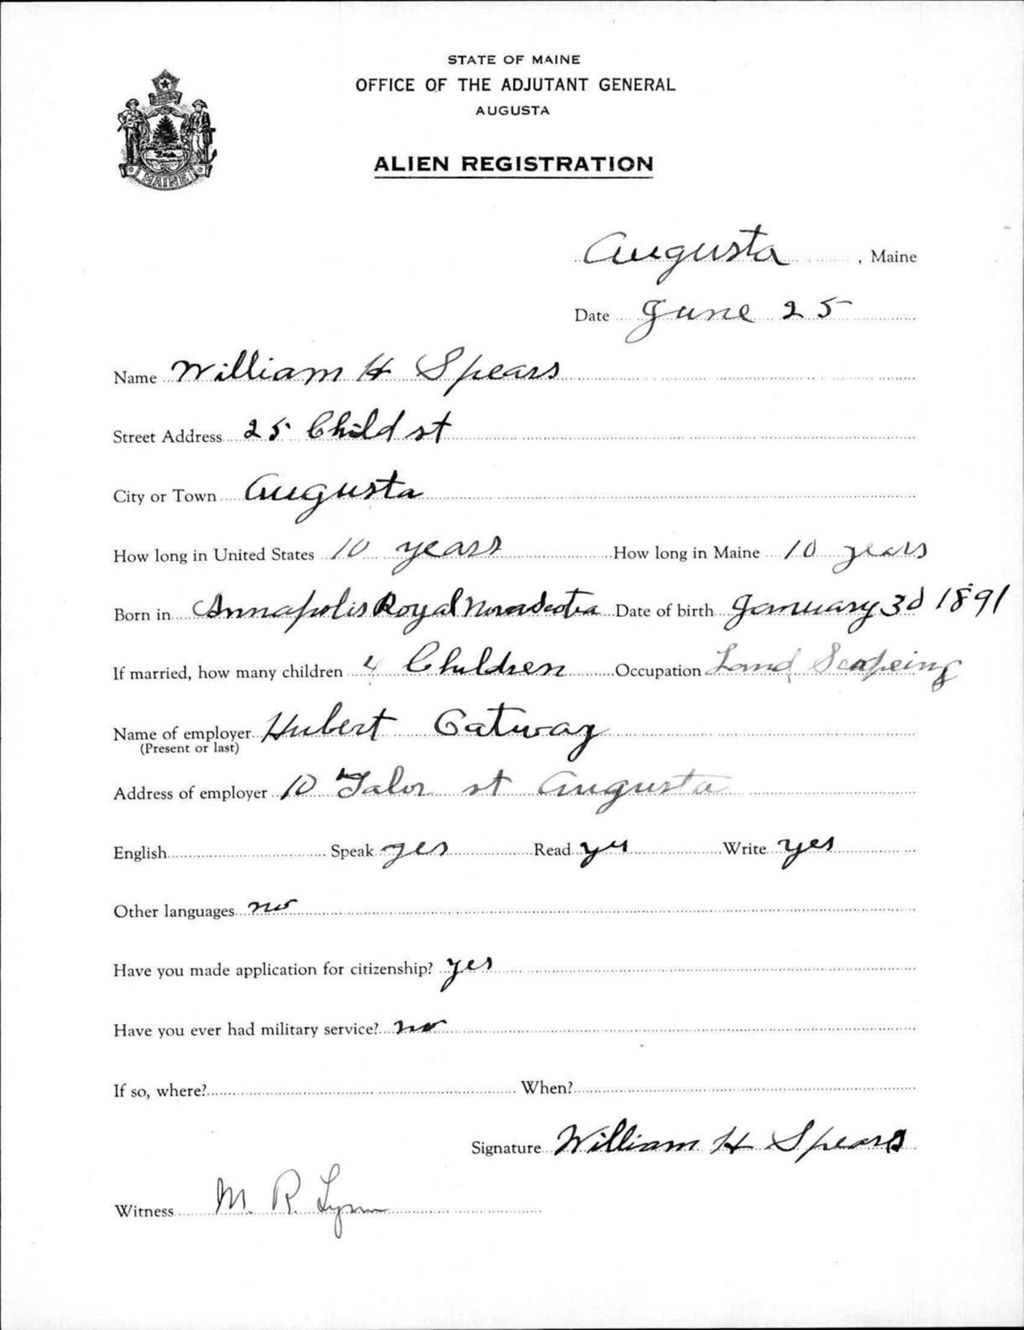 STATE OF MAINE
OFFICE OF THE ADJUTANT GENERAL
AUGUSTA
ALIEN REGISTRATION
MAINE
Augusta, Maine
Date June 25
Name William H Spears
Street Address 25 Child st
City or Town Augusta
How long in United States 10 years How long in Maine 10 years
Born in Annapolis Royal Nova Scotia Date of birth January 3d 1891
If married, how many children 4 Children Occupation Land Scapeing
Name of employer Hubert Gatway
(Present or last)
Address of employer 10 Talor st Augusta
English Speak yes Read yes Write yes
Other languages no
Have you made application for citizenship? yes
Have you ever had military service? no
If so, where? When?
Signature William H Spears
Witness M. R. Lynn